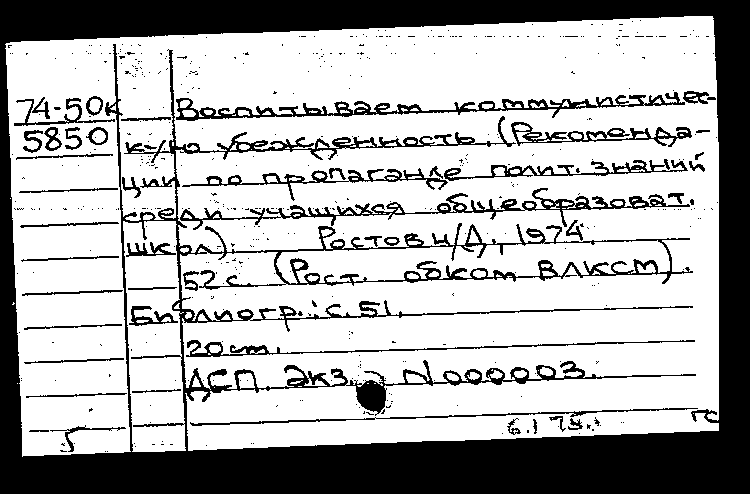 74-50к Воспитываем коммунистичес-
5850 кую убежденность. (Рекоменда-
ции по пропаганде полит. знаний
среди учащихся общеобразоват.
школ). Ростов н/Д., 1974.
52 с. (Рост. обком ВЛКСМ).
Библиогр.: с. 51.
20 cm.
ДСП. Экз. N 000003.
5 6.1 75. ГС